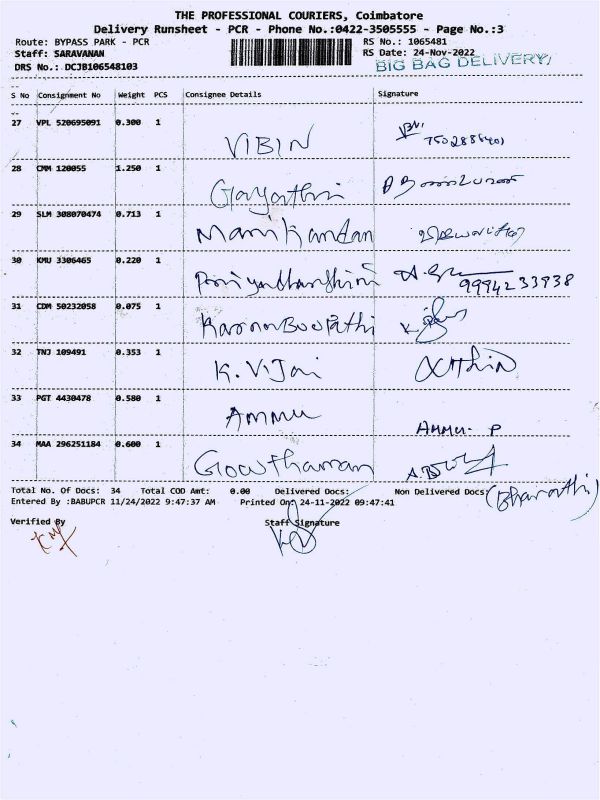 THE PROFESSIONAL COURIERS, Coimbatore
Delivery Runsheet - PCR - Phone No.:0422-3505555 - Page No.:3
Route: BYPASS PARK - PCR RS No.: 1065481
Staff: SARAVANAN RS Date: 24-Nov-2022
DRS No.: DCJB106548103 BIG BAG DELIVERY
S No Consignment No Weight PCS Consignee Details Signature
27 VPL 520695091 0.300 1 VIBIN
28 CMM 120055 1.250 1 Gayathri
29 SLM 308070474 0.713 1 Manikandan
30 KMU 3306465 0.220 1 Priyadharshini 9994233938
31 CDM 50232058 0.075 1
32 TNJ 109491 0.353 1 K. Vijai
33 PGT 4430478 0.580 1 AMMU AMMU. P
34 MAA 296251184 0.600 1 Gowthaman
Total No. Of Docs: 34 Total COD Amt: 0.00 Delivered Docs: Non Delivered Docs: (Bharathi)
Entered By :BABUPCR 11/24/2022 9:47:37 AM Printed On: 24-11-2022 09:47:41
Verified By Staff Signature